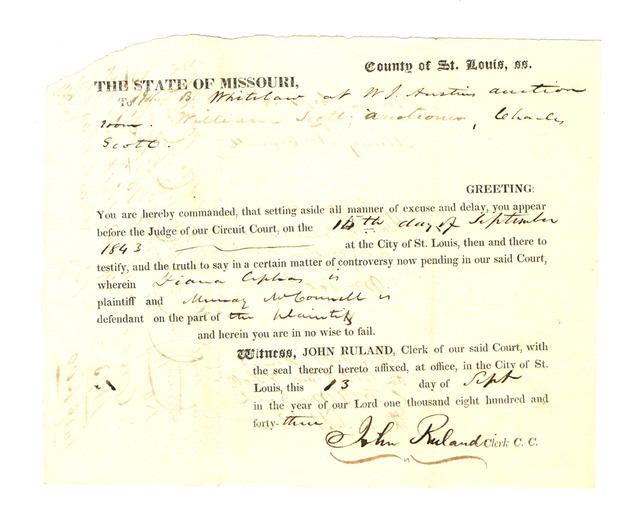 County of St. Louis, ss.
THE STATE OF MISSOURI,
To John B Whitelaw at W J. Austins auction
room. William Scott auctioneer, Charles
Scott.
GREETING:
You are hereby commanded, that setting aside all manner of excuse and delay, you appear
before the Judge of our Circuit Court, on the 14th day of September
1843 at the City of St. Louis, then and there to
testify, and the truth to say in a certain matter of controversy now pending in our said Court,
wherein Diana Cephas is
plaintiff and Murray McConnell is
defendant on the part of the Plaintiff
and herein you are in no wise to fail.
Witness, JOHN RULAND, Clerk of our said Court, with
the seal thereof hereto affixed, at office, in the City of St.
Louis, this 13 day of Sept
in the year of our Lord one thousand eight hundred and
forty-three
John Ruland Clerk C. C.